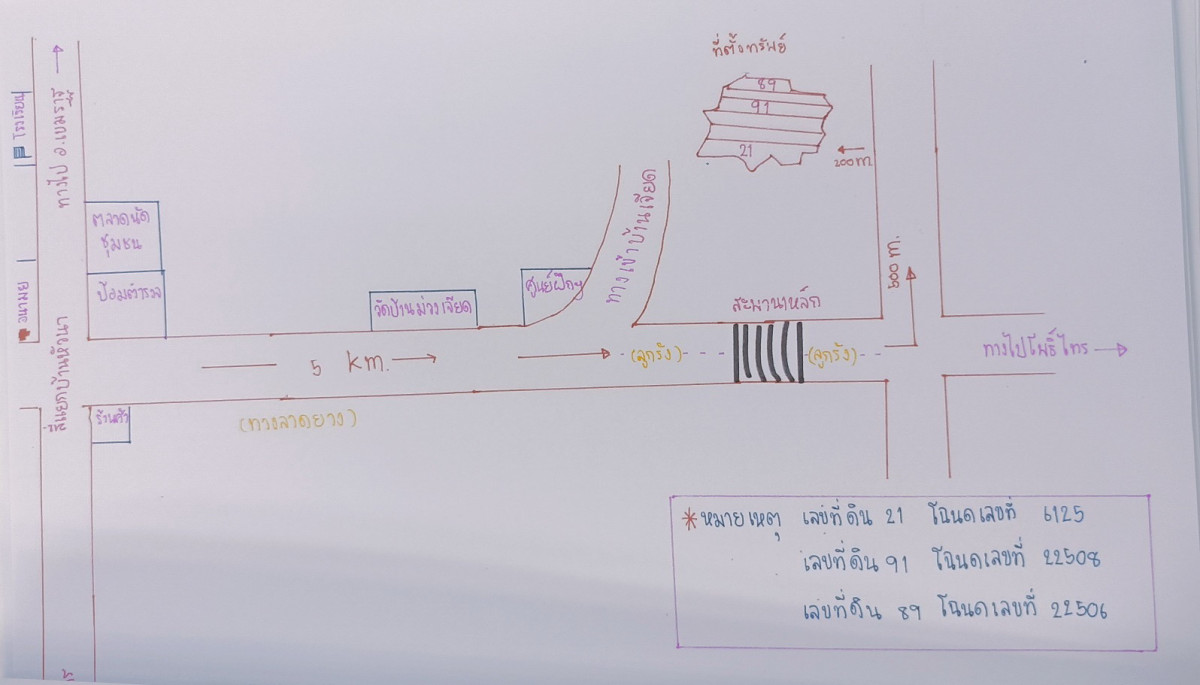 ที่ตั้งทรัพย์
89
91
21
200 m.
ทางไป อ.เขมราฐ
โรงเรียน
ตลาดนัด
ชุมชน
ป้อมตำรวจ
อนามัย
สี่แยกบ้านหัวนา
วัดบ้านม่วงเจียด
ศูนย์ฝึกฯ
ทางเข้าบ้านเจียด
สะพานเหล็ก
500 m.
5 km.
(ลูกรัง)
(ลูกรัง)
ทางไปโพธิ์ไทร
(ทางลาดยาง)
*หมายเหตุ เลขที่ดิน 21 โฉนดเลขที่ 6125
เลขที่ดิน 91 โฉนดเลขที่ 22508
เลขที่ดิน 89 โฉนดเลขที่ 22506